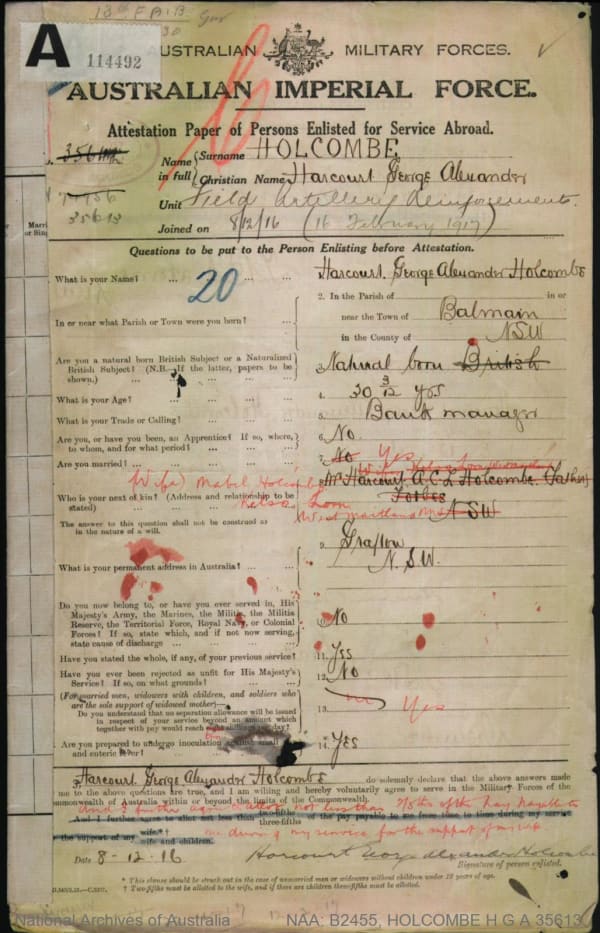 13th F.A.B.
A
114492
AUSTRALIAN MILITARY FORCES.
AUSTRALIAN IMPERIAL FORCE.
Attestation Paper of Persons Enlisted for Service Abroad.
Name in full
Surname HOLCOMBE
Christian Name Harcourt George Alexander
35613
Unit Field Artillery Reinforcements.
Joined on 8/12/16 (16 February 1917)
Questions to be put to the Person Enlisting before Attestation.
What is your Name? ... Harcourt George Alexander Holcombe
20
In or near what Parish or Town were you born? ...
2. In the Parish of in or
near the Town of Balmain
in the County of NSW
Are you a natural born British Subject or a Naturalized
British Subject? (N.B.—If the latter, papers to be
shown.)
3. Natural born British
What is your Age? 4. 30 3/12 yrs
What is your Trade or Calling? 5. Bank manager
Are you, or have you been, an Apprentice? If so, where,
to whom, and for what period? 6. No.
Are you married? 7. No Yes
(Wife) Mabel Holcombe
Who is your next of kin? (Address and relationship to be
stated)
Mr Harcourt A.C.L Holcombe (Father)
Forbes
West Maitland NSW
The answer to this question shall not be construed as
in the nature of a will.
What is your permanent address in Australia? 9. Grafton
N.S.W.
Do you now belong to, or have you ever served in, His
Majesty's Army, the Marines, the Militia, the Militia
Reserve, the Territorial Force, Royal Navy, or Colonial
Forces? If so, state which, and if not now serving,
state cause of discharge No
Have you stated the whole, if any, of your previous service? 11. Yes
Have you ever been rejected as unfit for His Majesty's
Service? If so, on what grounds? 12. No
(For married men, widowers with children, and soldiers who
are the sole support of widowed mother)—
Do you understand that no separation allowance will be issued
in respect of your service beyond an amount which
together with pay would reach
13. Yes
Are you prepared to undergo inoculation against small
and enteric fever? 14. Yes
I, Harcourt George Alexander Holcombe do solemnly declare that the above answers made
me to the above questions are true, and I am willing and hereby voluntarily agree to serve in the Military Forces of the
Commonwealth of Australia within or beyond the limits of the Commonwealth.
And I further agree to allot not less than of the pay payable to
And I further agree to allot not less than two-fifths three-fifths of the pay payable to me from time to time during my service
the support of my wife.† wife and children. me during my service for the support of my wife
Date 8-12-16 Harcourt George Alexander Holcombe
Signature of person enlisted.
* This clause should be struck out in the case of unmarried men or widowers without children under 18 years of age.
† Two-fifths must be allotted to the wife, and if there are children three-fifths must be allotted.
National Archives of Australia NAA: B2455, HOLCOMBE H G A 35613